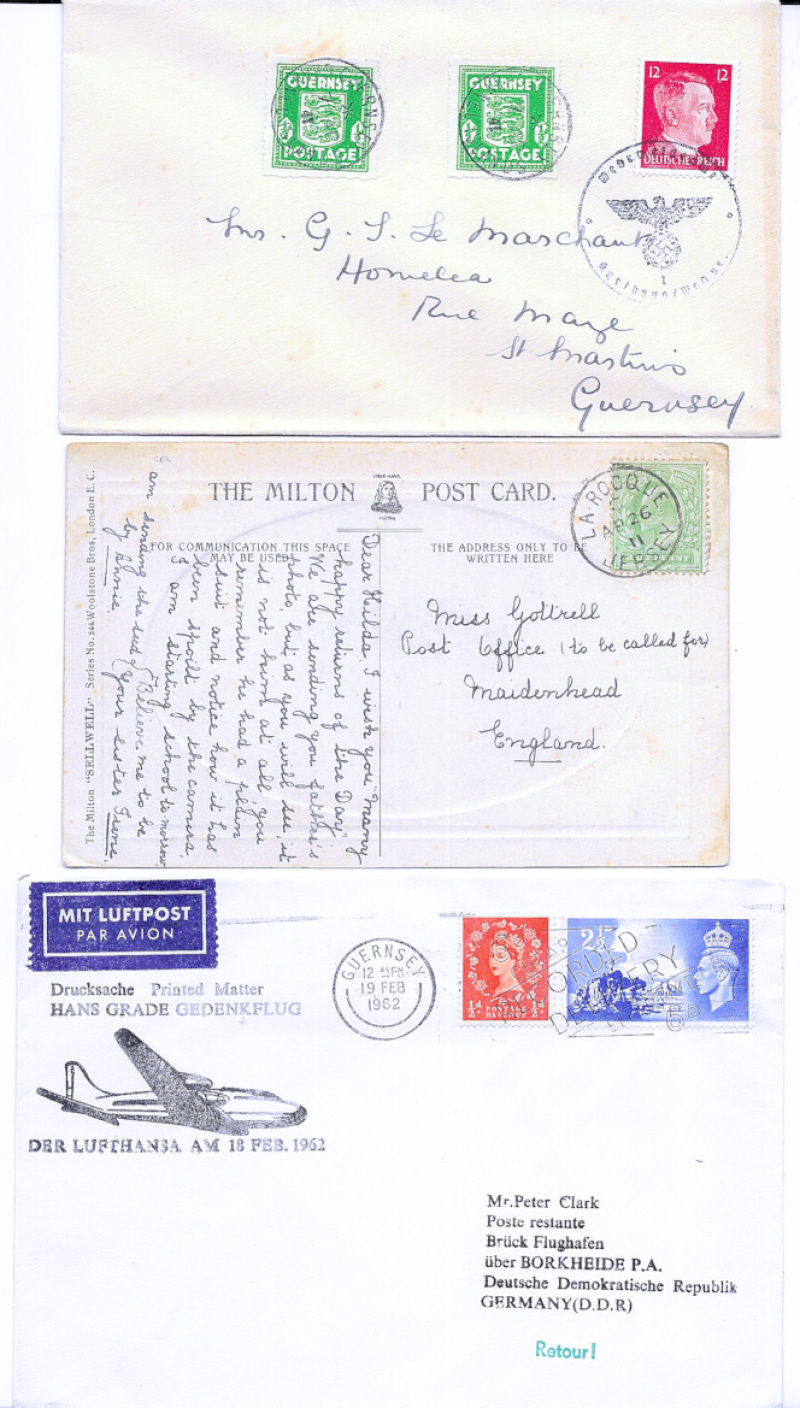 GUERNSEY
POSTAGE
GUERNSEY
POSTAGE
12 12
DEUTSCHES REICH
Mrs. G. S. Le Marchant
Homelea
Rue Maze
St Martins
Guernsey
THE MILTON POST CARD.
FOR COMMUNICATION THIS SPACE
MAY BE USED
THE ADDRESS ONLY TO BE
WRITTEN HERE
LA·ROCQUE
AP 26
11
JERSEY
The Milton "SELLWELL" Series No. Woolstone Bros, London E.C.
Dear Hilda. I wish you "Many
happy returns of the Day"
We are sending you father's
photo, but as you will see, it
is not him at all, you
remember he had a plain
suit and notice how it has
been spoilt by the camera.
I am starting school to-morrow
Believe me to be
Your sister Irene.
I am sending the
by Annie.
Miss Gottrell
Post Office (to be called for)
Maidenhead
England.
MIT LUFTPOST
PAR AVION
Drucksache Printed Matter
HANS GRADE GEDENKFLUG
DER LUFTHANSA AM 18 FEB. 1962
GUERNSEY
19 FEB
1962
POSTAGE
REVENUE
½d ½d
2½d
RECORDED
DELIVERY
Mr.Peter Clark
Poste restante
Brück Flughafen
über BORKHEIDE P.A.
Deutsche Demokratische Republik
GERMANY(D.D.R)
Retour!